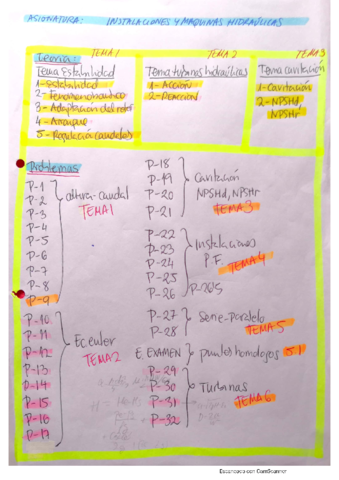 ASIGNATURA: INSTALACIONES Y MAQUINAS HIDRAÚLICAS
TEMA 1
Teoría:
Tema Estabilidad
1- Estabilidad
2- Fenómeno bombeo
3- Adaptación del rotor
4- Arranque
5- Regulación caudales
TEMA 2
Tema turbinas hidraúlicas
1- Acción
2- Reacción
TEMA 3
Tema cavitación
1- Cavitación
2- NPSHd,
NPSHr
Problemas
P-1
P-2
P-3
P-4
P-5
P-6
P-7
P-8
P-9
altura-caudal
TEMA 1
P-10
P-11
P-12
P-13
P-14
P-15
P-16
P-17
Ec. euler
TEMA 2
P-18
P-19
P-20
P-21
Cavitación
NPSHd, NPSHr
TEMA 3
P-22
P-23
P-24
P-25
P-26
Instalaciones
P.F.
TEMA 4
P-26'5
P-27
P-28
Serie-Paralelo
TEMA 5
E. EXAMEN
puntos homologos 5.1
P-29
P-30
P-31
P-32
Turbinas
TEMA 6
Escaneado con CamScanner